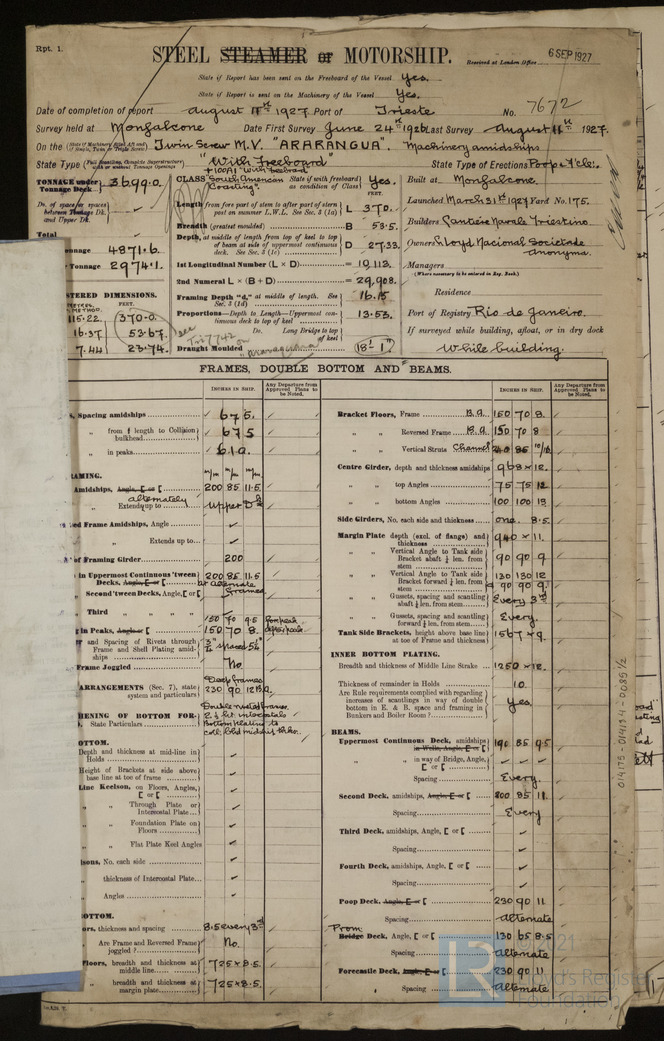 Rpt. 1.
STEEL STEAMER or MOTORSHIP.
6 SEP 1927
Received at London Office
State if Report has been sent on the Freeboard of the Vessel Yes.
State if Report is sent on the Machinery of the Vessel Yes.
Date of completion of report August 11th 1927 Port of Trieste No. 7672
Survey held at Monfalcone Date First Survey June 24th 1926 Last Survey August 11th 1927.
On the Twin Screw M.V. "ARARANGUA". Machinery amidships
State Type "With Freeboard" State Type of Erections Poop & Fcle:
TONNAGE under Tonnage Deck 3699.0.
CLASS +100A1 "With freeboard" South American Coasting. State if with freeboard as condition of Class Yes.
Built at Monfalcone.
Do. of space or spaces between Tonnage Dk. and Upper Dk.
Length from fore part of stem to after part of stern post on summer L.W.L. See Sec. 3 (1a) L 370.
Launched March 31st 1927 Yard No. 175.
Total
Breadth (greatest moulded) B 53.5.
Builders Cantiere Navale Triestino
Tonnage 4871.6.
Depth, at middle of length, from top of keel to top of beam at side of uppermost continuous deck. See Sec. 3 (1c) D 27.33.
Owners Lloyd Nacional Societade Anonyma.
Tonnage 2974.1.
1st Longitudinal Number (L × D) = 10,112.
Managers
(Where necessary to be entered in Reg. Book.)
2nd Numeral L × (B + D) = 29,908.
Residence
STERED DIMENSIONS.
Framing Depth "d," at middle of length. See Sec. 3 (1d) 16.15
FEET.
115.22 370.0
Proportions—Depth to Length—Uppermost continuous deck to top of keel 13.53.
Port of Registry Rio de Janeiro.
16.37 53.67
Do. Long Bridge to top of keel
If surveyed while building, afloat, or in dry dock
7.44 23.74.
Draught Moulded 18' 1"
While building.
FRAMES, DOUBLE BOTTOM AND BEAMS.
INCHES IN SHIP. Any Departure from Approved Plans to be Noted.
INCHES IN SHIP. Any Departure from Approved Plans to be Noted.
s, Spacing amidships 675.
" from 1/5 length to Collision bulkhead 675
" in peaks 610.
AMING.
Amidships, Angle, [ or [ 200 85 11.5
alternately
Extends up to Upper Dk
ed Frame Amidships, Angle
" " Extends up to
of Framing Girder 200
in Uppermost Continuous 'tween Decks, Angle, [ or [ 200 85 11.5
at alternate frames
Second 'tween Decks, Angle, [ or [
" Third " "
150 70 9.5 forepeak
g in Peaks, Angle or [ 150 70 8. after peak.
and Spacing of Rivets through Frame and Shell Plating amidships
Frame Joggled No.
ARRANGEMENTS (Sec. 7), state system and particulars Deep frames 230 90 12 B.A.
HENING OF BOTTOM FOR. State Particulars
OTTOM.
Depth and thickness at mid-line in Holds
Height of Brackets at side above base line at toe of frame
Line Keelson, on Floors, Angles, [ or [
" " Through Plate or Intercostal Plate
" " Foundation Plate on Floors
" " Flat Plate Keel Angles
lsons, No. each side
thickness of Intercostal Plate
Angles
OTTOM.
ors, thickness and spacing 8.5 every 3rd
Are Frame and Reversed Frame joggled? No.
Floors, breadth and thickness at middle line 725×8.5.
" breadth and thickness at margin plate 725×8.5.
Bracket Floors, Frame B.A. 150 70 8.
" " Reversed Frame B.A. 150 70 8
" " Vertical Struts Channel
Centre Girder, depth and thickness amidships 968×12.
" " top Angles 75 75 12
" " bottom Angles 100 100 13
Side Girders, No. each side and thickness one. 8.5.
Margin Plate depth (excl. of flange) and thickness 940×11.
" " Vertical Angle to Tank side Bracket abaft 1/5 len. from stem 90 90 9
" " Vertical Angle to Tank side Bracket forward 1/5 len. from stem 130 130 12
90 90 9.
" " Gussets, spacing and scantling abaft 1/5 len. from stem Every 3rd
" " Gussets, spacing and scantling forward 1/5 len. from stem Every.
Tank Side Brackets, height above base line at toe of Frame and thickness 1567×9.
INNER BOTTOM PLATING.
Breadth and thickness of Middle Line Strake 1250×12.
Thickness of remainder in Holds 10.
Are Rule requirements complied with regarding increases of scantlings in way of double bottom in E. & R. space and framing in Bunkers and Boiler Room? Yes.
BEAMS.
Uppermost Continuous Deck, amidships in Wells, Angle, [ or [ 190 85 9.5
" " in way of Bridge, Angle, [ or [
Spacing Every.
Second Deck, amidships, Angle, [ or [ 200 85 11.
Spacing Every
Third Deck, amidships, Angle, [ or [
Spacing
Fourth Deck, amidships, Angle, [ or [
Spacing
Poop Deck, Angle, [ or [ 230 90 11
Spacing Alternate
Prom.
Bridge Deck, Angle, [ or [ 130 65 8.5
Spacing Alternate
Forecastle Deck, Angle, [ or [ 230 90 11
" Spacing Alternate
014175-014194-0085 1/2
© 2021
Lloyd's Register
Foundation